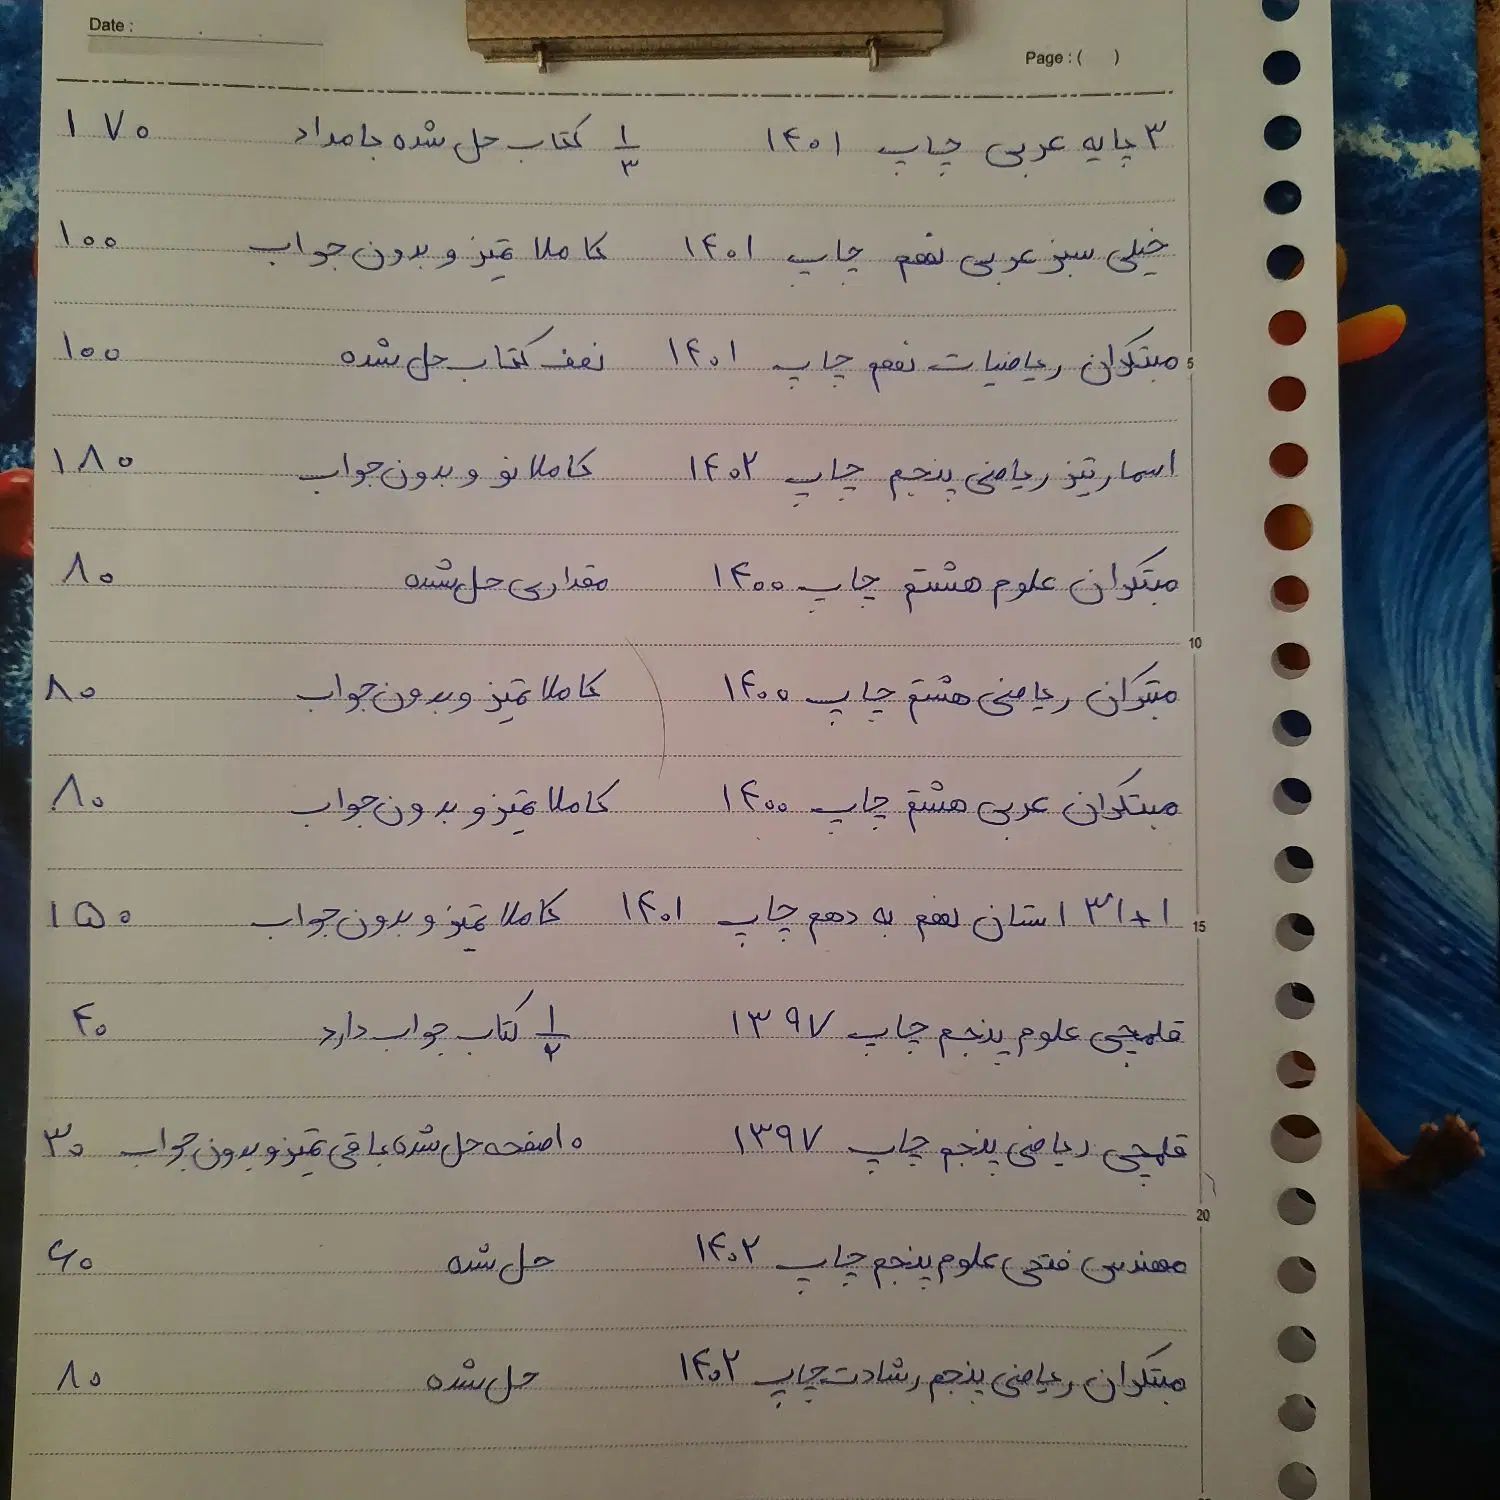 Date :
Page : ( )
۳ پایه عربی چاپ ۱۴۰۱ ۱/۳ کتاب حل شده با مداد ۱۷۰
خیلی سبز عربی نهم چاپ ۱۴۰۱ کاملا تمیز و بدون جواب ۱۰۰
مبتکران ریاضیات نهم چاپ ۱۴۰۱ نصف کتاب حل شده ۱۰۰
5
اسمارتیز ریاضی پنجم چاپ ۱۴۰۲ کاملا نو و بدون جواب ۱۸۰
مبتکران علوم هشتم چاپ ۱۴۰۰ مقداری حل شده ۸۰
10
مبتکران ریاضی هشتم چاپ ۱۴۰۰ کاملا تمیز و بدون جواب ۸۰
مبتکران عربی هشتم چاپ ۱۴۰۰ کاملا تمیز و بدون جواب ۸۰
۳۱+۱ استان نهم به دهم چاپ ۱۴۰۱ کاملا تمیز و بدون جواب ۱۵۰
15
قلمچی علوم پنجم چاپ ۱۳۹۷ ۱/۲ کتاب جواب دارد ۴۰
قلمچی ریاضی پنجم چاپ ۱۳۹۷ ۱۰ صفحه حل شده باقی تمیز و بدون جواب ۳۰
20
مهندس فتحی علوم پنجم چاپ ۱۴۰۲ حل شده ۶۰
مبتکران ریاضی پنجم رشادت چاپ ۱۴۰۲ حل شده ۸۰